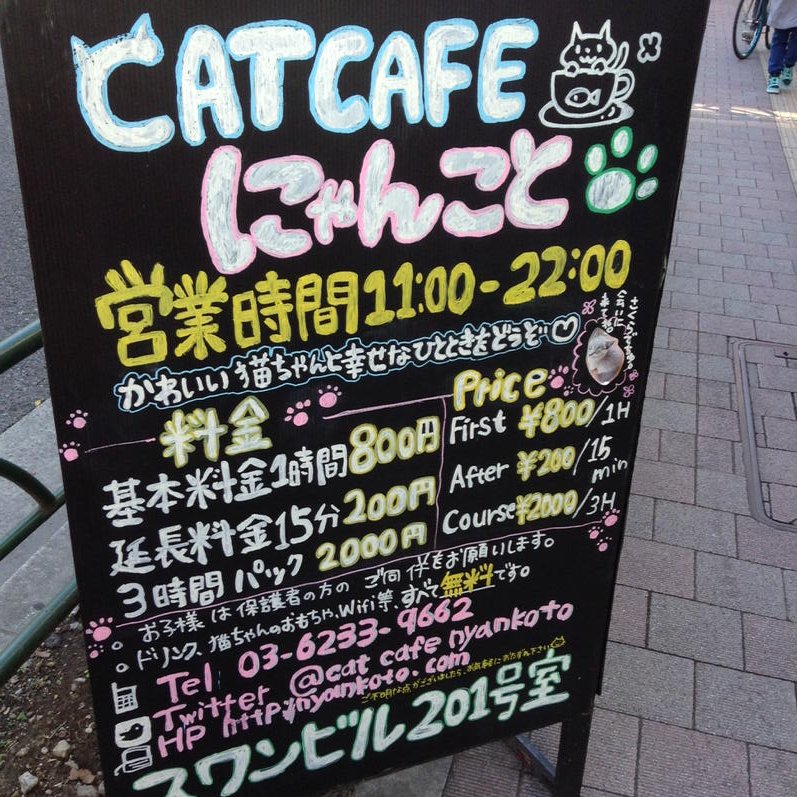 CATCAFE
にゃんこと
営業時間11:00-22:00
かわいい猫ちゃんと幸せなひとときをどうぞ♡
料金
基本料金1時間800円
延長料金15分200円
3時間パック2000円
Price
First ¥800/1H
After ¥200/15min
Course¥2000/3H
。お子様は保護者の方のご同伴をお願いします。
。ドリンク、猫ちゃんのおもちゃ、Wifi等、すべて無料です。
Tel 03-6233-9662
Twitter @cat cafe nyankoto
HP http:nyankoto.com
ご不明な点がございましたら、お気軽におたずね下さい
スワンビル201号室